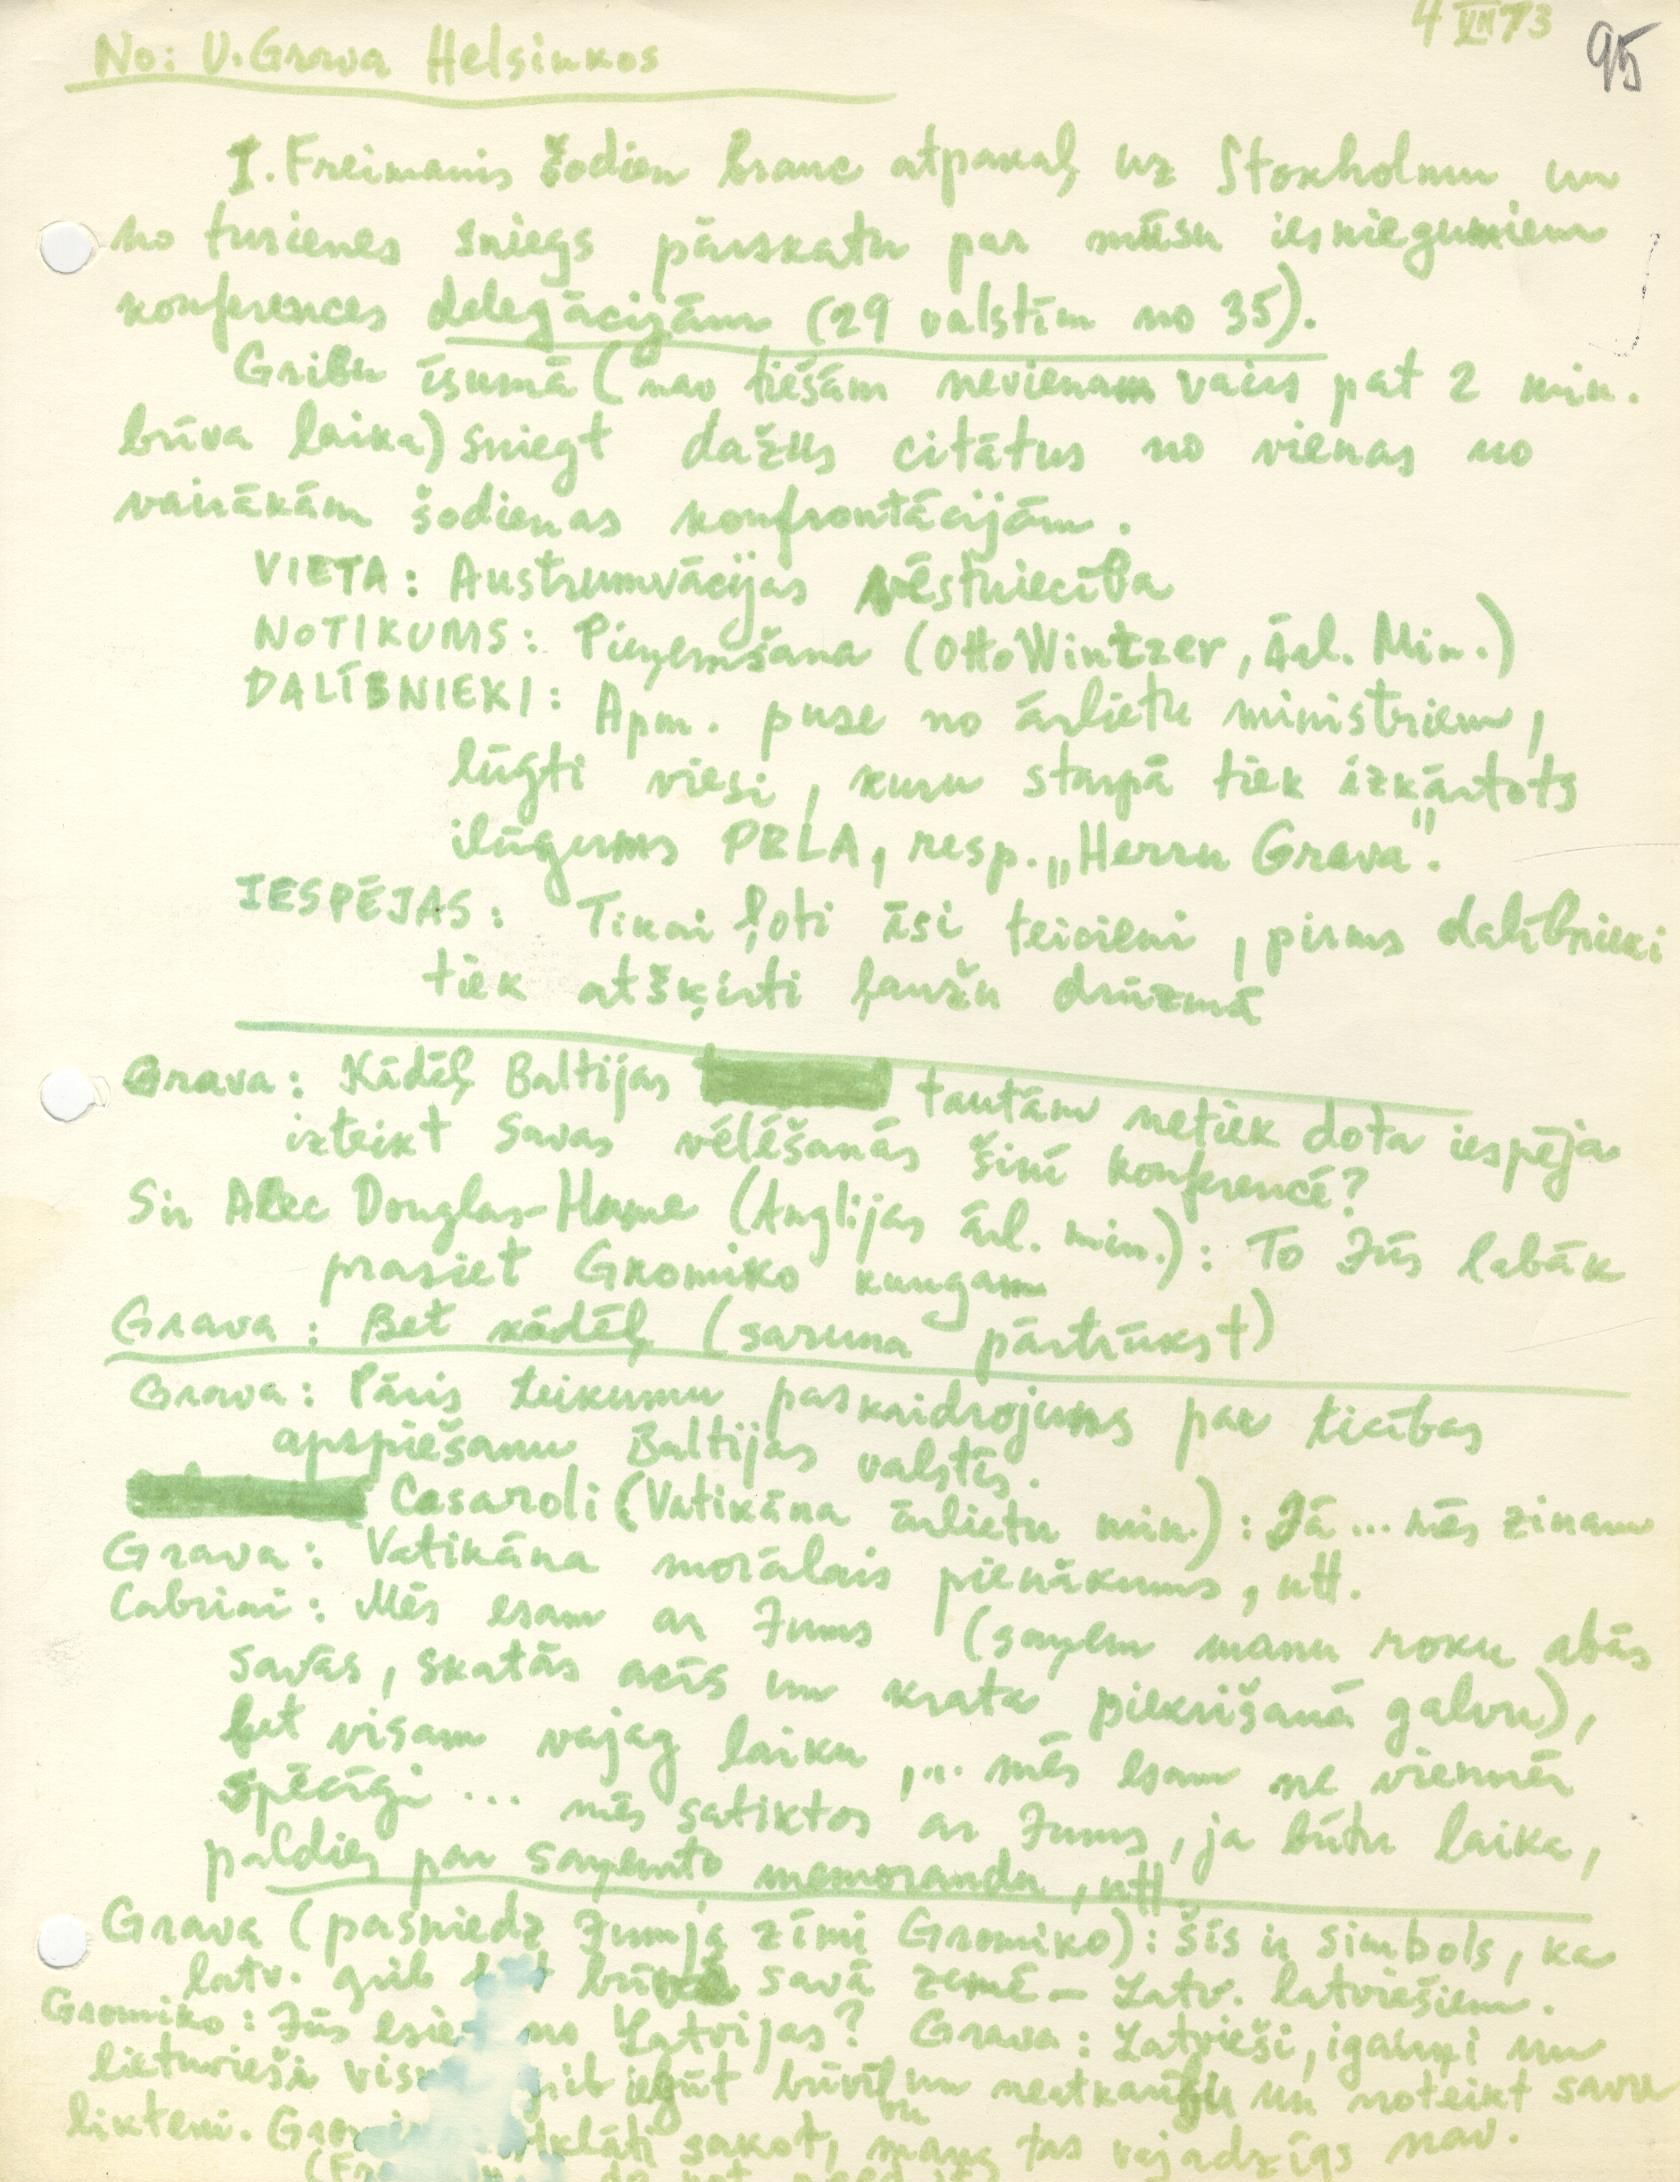 4 VII 73
95
No: U. Grava Helsinkos
I. Freimanis šodien brauc atpakaļ uz Stokholmu un
no turienes sniegs pārskatu par mūsu iesniegumiem
konferences delegācijām (29 valstīm no 35).
Gribu īsumā (nav tiešām nevienam vairs pat 2 min.
brīva laika) sniegt dažus citātus no vienas no
vairākām šodienas konfrontācijām.
VIETA: Austrumvācijas vēstniecība
NOTIKUMS: Pieņemšana (Otto Wintzer, Ārl. Min.)
DALĪBNIEKI: Apm. puse no ārlietu ministriem,
lūgti viesi, kuru starpā tiek izkārtots
ilūgums PBLA, resp. „Herrn Grava".
IESPĒJAS: Tikai ļoti īsi teicieni, pirms dalībnieki
tiek atšķirti ļaužu drūzmā
Grava: Kādēļ Baltijas tautām netiek dota iespēja
izteikt savas vēlēšanās šinī konferencē?
Sir Alec Douglas-Hume (Anglijas ārl. min.): To Jūs labāk
prasiet Gromiko kungam
Grava: Bet kādēļ (saruna pārtrūkst)
Grava: Pāris teikumu paskaidrojums par ticības
apspiešanu Baltijas valstīs.
Casaroli (Vatikāna ārlietu min.): Jā... mēs zinam
Grava: Vatikāna morālais pienākums, utt.
Cabrini: Mēs esam ar Jums (saņem manu roku abās
savās, skatās acīs un krata piekrišanā galvu),
bet visam vajag laiku,... mēs esam ne vienmēr
spēcīgi ... mēs satiktos ar Jums, ja būtu laika,
paldies par saņemto memorandu, utt.
Grava (pasniedz Jumja zīmi Gromiko): šīs ir simbols, ka
latv. grib būt savā zemē – Latv. latviešiem.
Gromiko: Jūs esiet no Latvijas? Grava: Latvieši, igauņi un
lietuvieši grib iegūt brīvību un neatkarību un noteikt savu
likteni. sakot, mans tas vajadzīgs nav.
do not need it